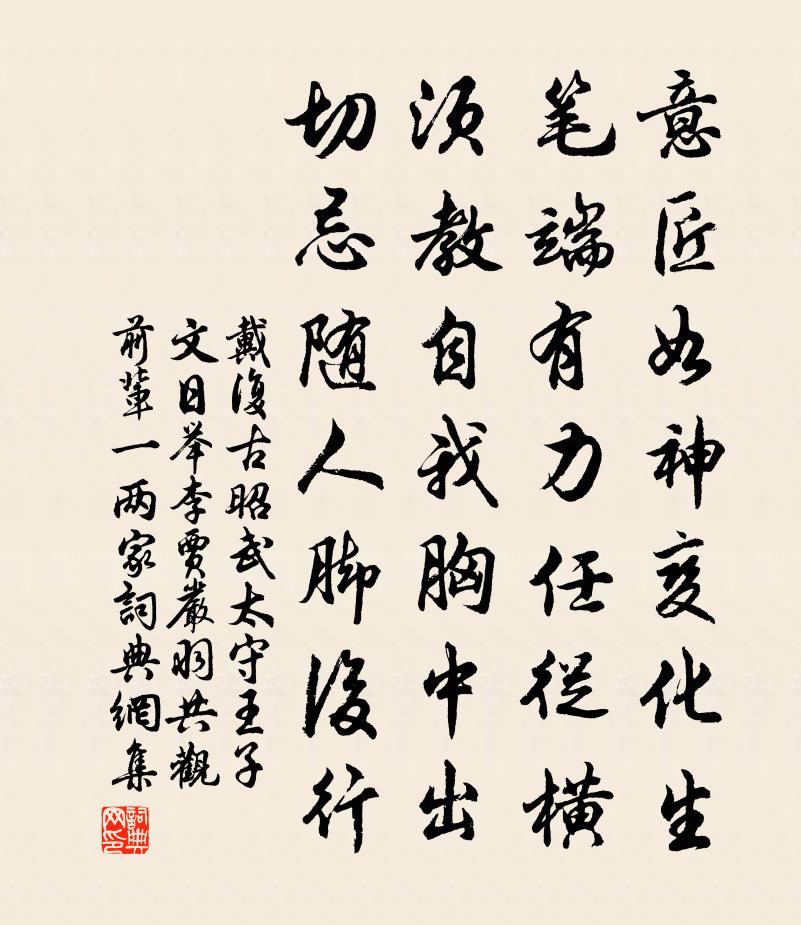 意匠如神变化生
笔端有力任從横
须教自我胸中出
切忌随人脚後行
戴復古昭武太守王子
文日举李賈嚴羽共觀
前輩一两家詞典網集
詞典网印